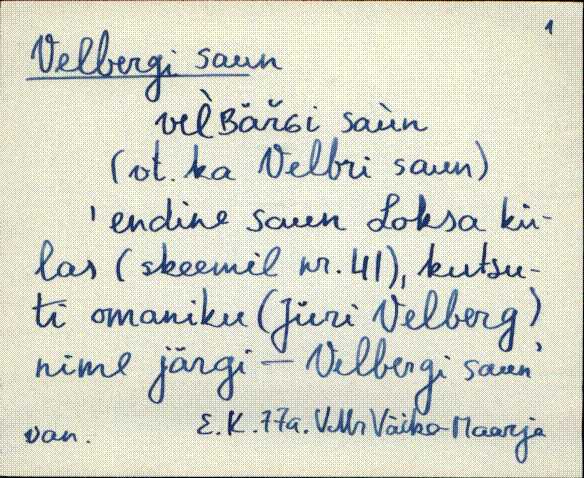 1
Velbergi saun
vel̀ʙäřɢi saùn
(vt. ka Velbri saun)
'endine saun Loksa kü-
las (skeemil nr. 41), kutsu-
ti omaniku (Jüri Velberg)
nime järgi – Velbergi saun'
van. E.K. 77a. VMr Väike-Maarja